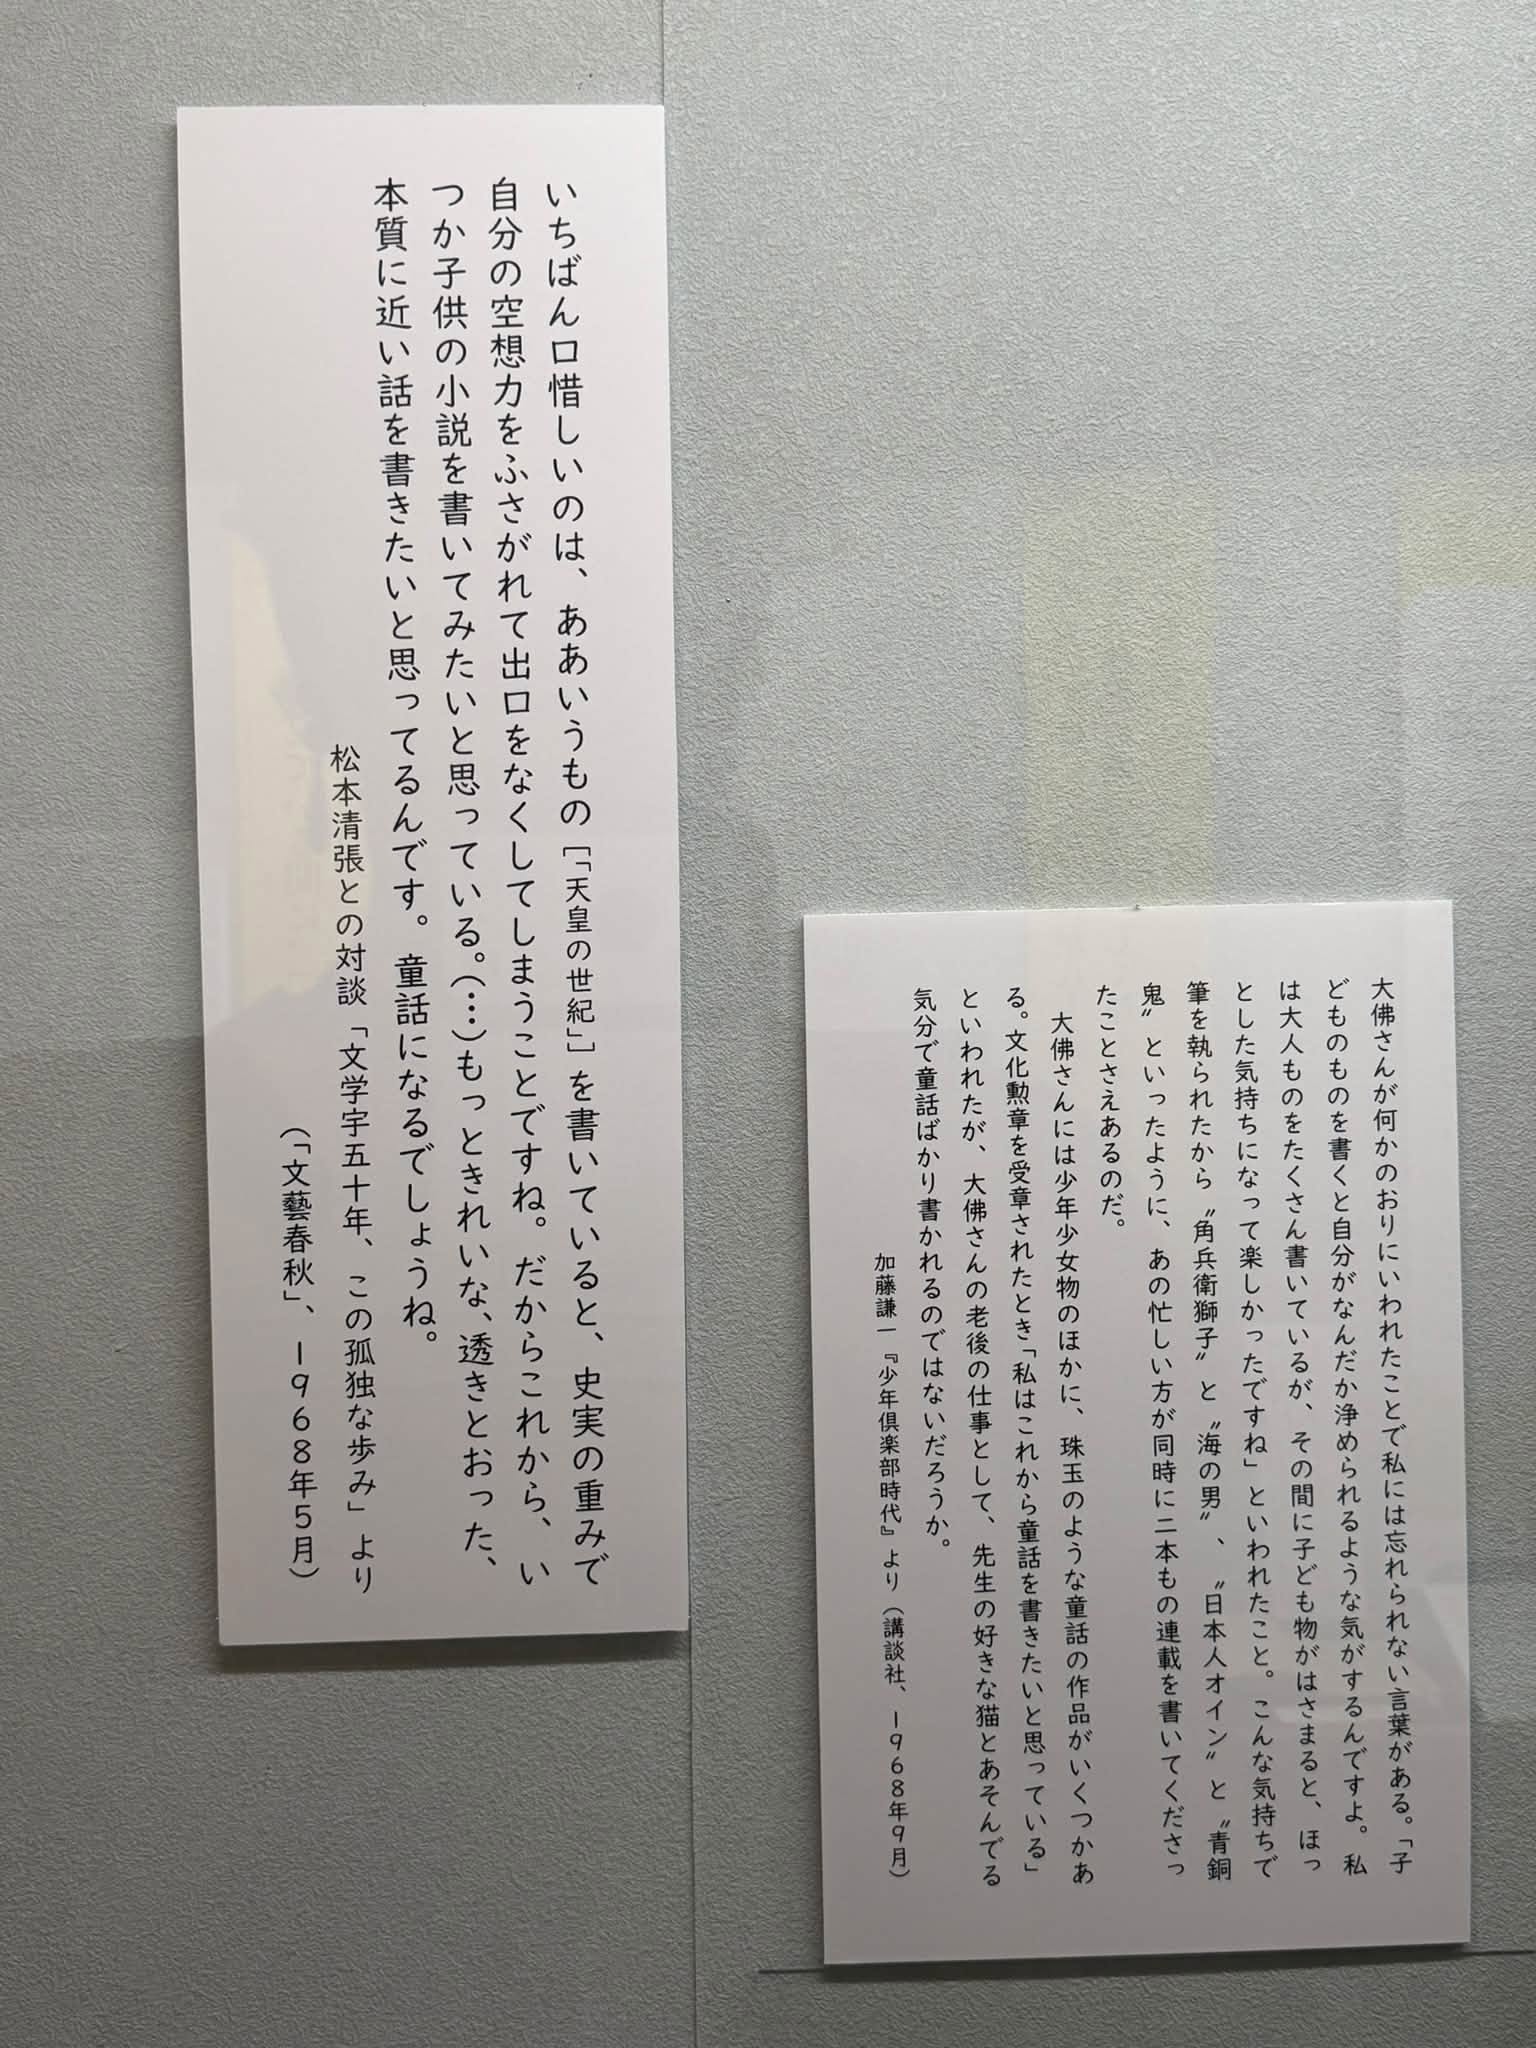 大佛さんが何かのおりにいわれたことで私には忘れられない言葉がある。「子
どものものを書くと自分がなんだか浄められるような気がするんですよ。私
は大人ものをたくさん書いているが、その間に子ども物がはさまると、ほっ
とした気持ちになって楽しかったですね」といわれたこと。こんな気持ちで
筆を執られたから〝角兵衛獅子〟と〝海の男〟、〝日本人オイン〟と〝青銅
鬼〟といったように、あの忙しい方が同時に二本もの連載を書いてくださっ
たことさえあるのだ。
大佛さんには少年少女物のほかに、珠玉のような童話の作品がいくつかあ
る。文化勲章を受章されたとき「私はこれから童話を書きたいと思っている」
といわれたが、大佛さんの老後の仕事として、先生の好きな猫とあそんでる
気分で童話ばかり書かれるのではないだろうか。
加藤謙一『少年倶楽部時代』より（講談社、1968年9月）
いちばん口惜しいのは、ああいうもの［「天皇の世紀」］を書いていると、史実の重みで
自分の空想力をふさがれて出口をなくしてしまうことですね。だからこれから、い
つか子供の小説を書いてみたいと思っている。（…）もっときれいな、透きとおった、
本質に近い話を書きたいと思ってるんです。童話になるでしょうね。
松本清張との対談「文学宇五十年、この孤独な歩み」より
（「文藝春秋」、1968年5月）